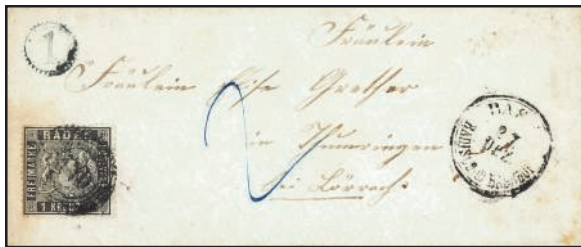 1
Fräulein
Fräulein Elise Grether
in Thumringen
bei Lörrach
BADEN
FREIMARKE
1 KREUZER
BAS
27
DEZ